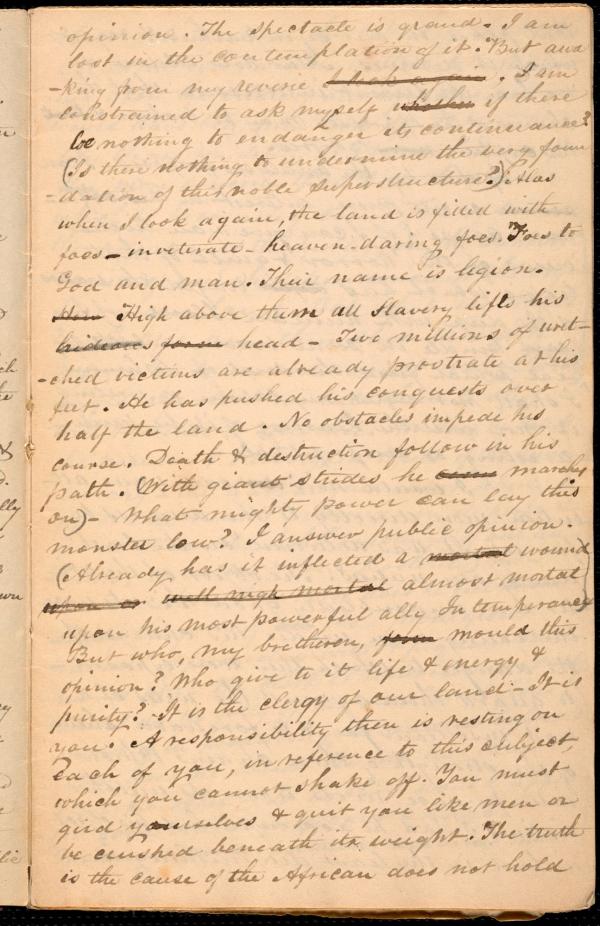 opinion. The spectacle is grand. I am
lost in the contemplation of it. But awa
-king from my reverie I look again. I am
constrained to ask myself whether if there
be nothing to endanger its continuance?
(Is there nothing to undermine the very foun
-dation of this noble superstructure?) Alas
when I look again, the land is filled with
foes - inveterate - heaven-daring foes. Foes to
God and man. Their name is legion.
High above them all Slavery lifts his
hideous form head - Two millions of wret-
-ched victims are already prostrate at his
feet. He has pushed his conquests over
half the land. No obstacles impede his
course. Death & destruction follow in his
path. (With giant strides he marches
on) - What mighty power can lay this
monster low? I answer public opinion.
(Already has it inflicted a mortal wound
upon or well nigh mortal almost mortal)
upon his most powerful ally Intemperance
But who, my brethren, form mould this
opinion? Who give to it life & energy &
purity? It is the clergy of our land - It is
you. A responsibility then is resting on
each of you, in reference to this subject,
which you cannot shake off. You must
gird yourselves & quit you like men or
be crushed beneath its weight. The truth
is the cause of the African does not hold